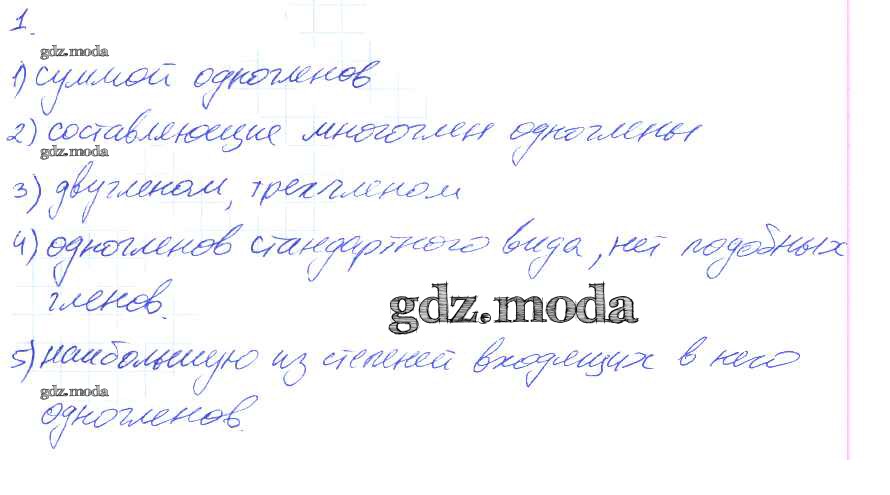 1.
gdz.moda
1) суммой одночленов
2) составляющие многочлен одночлены
gdz.moda
3) двучленом, трехчленом
4) одночленов стандартного вида, нет подобных
членов.
gdz.moda
5) наибольшую из степеней входящих в него
gdz.moda
одночленов.